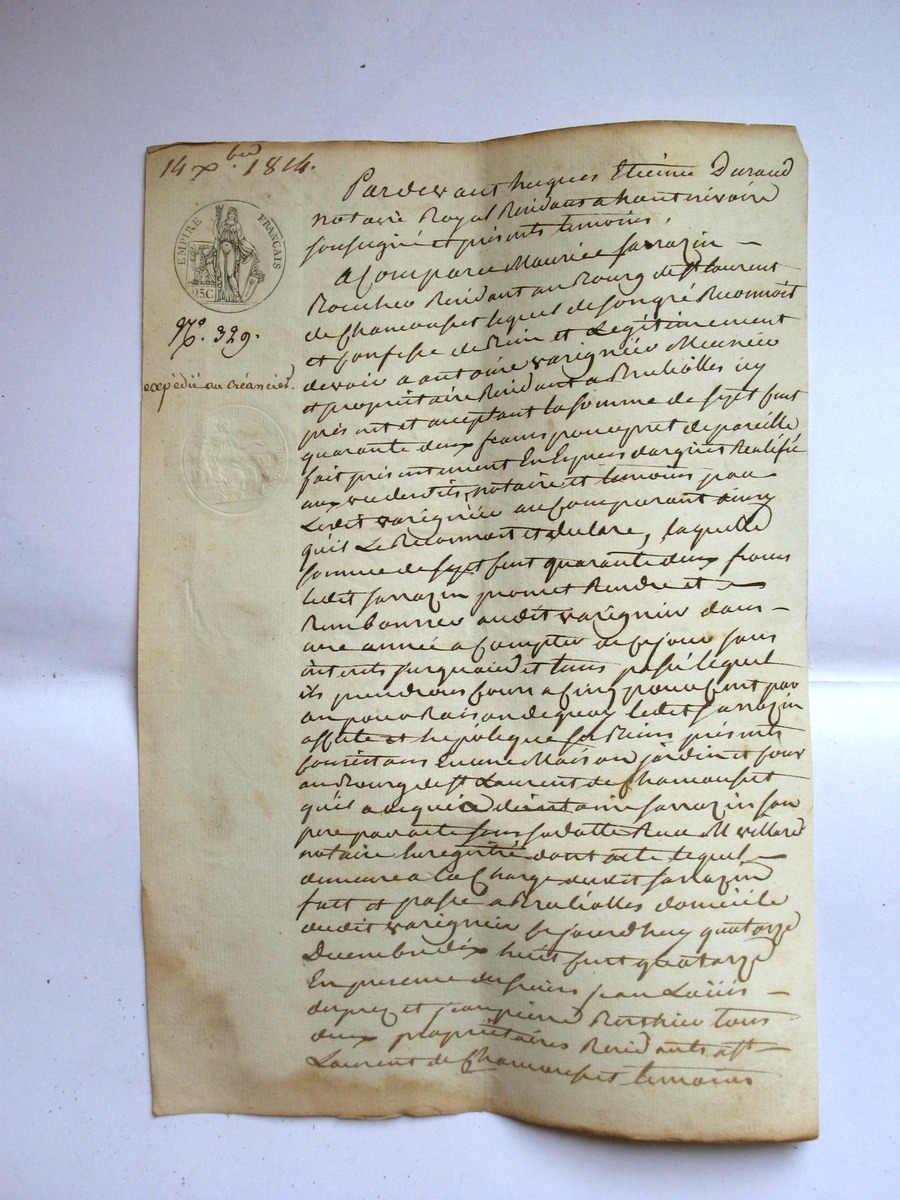 14 Xbre 1814.
EMPIRE FRANÇAIS
25C
No. 329.
expédié au créancier.
Pardevant hugues Etienne Durand
notaire Royal Résidant a hauterivoire
soussigné et présents temoins,
a Comparu Maurice Sarrazin
Résidant au Bourg de St Laurent
de Chamousset lequel de son gré Reconnoit
et Confesse de bien et Légitimement
devoir a antoine varignier Meunier
et propriétaire Résidant a Brulliolles icy
présent et acceptant la somme de sept Cent
quarante deux francs pour pret de pareille
fait présentement En Espèces d'argent Réalisée
aux vu desdits notaire et temoins par
Ledit varignier au Comparant ainsy
qu'il Le Reconnoit et déclare, laquelle
somme de sept Cent quarante deux francs
ledit Sarrazin promet Rendre et
Rembourser audit varignier dans
une année a Compter de Ce jour sans
interets jusqu'alors et lequel
ils prendront Cours a Cinq pour Cent par
an pour Raison de quoy ledit Sarrazin
affecte et hepotèque ses Biens présents
Consistans En une Maison jardin et Cour
au Bourg de St Laurent de Chamousset
qu'il a acquis d'antoine Sarrazin son
pere par acte sous sa datte Reçu Me villard
notaire Enregistré dont acte lequel
demeure a la Charge dudit Sarrazin
fait et passé a Brulliolles domicile
dudit varignier Ce jourd'huy quatorze
Décembre dix huit Cent quatorze
En presence des sieurs jean Loüis
et jean pierre tous
deux propriétaires Residants a St
Laurent de Chamousset temoins